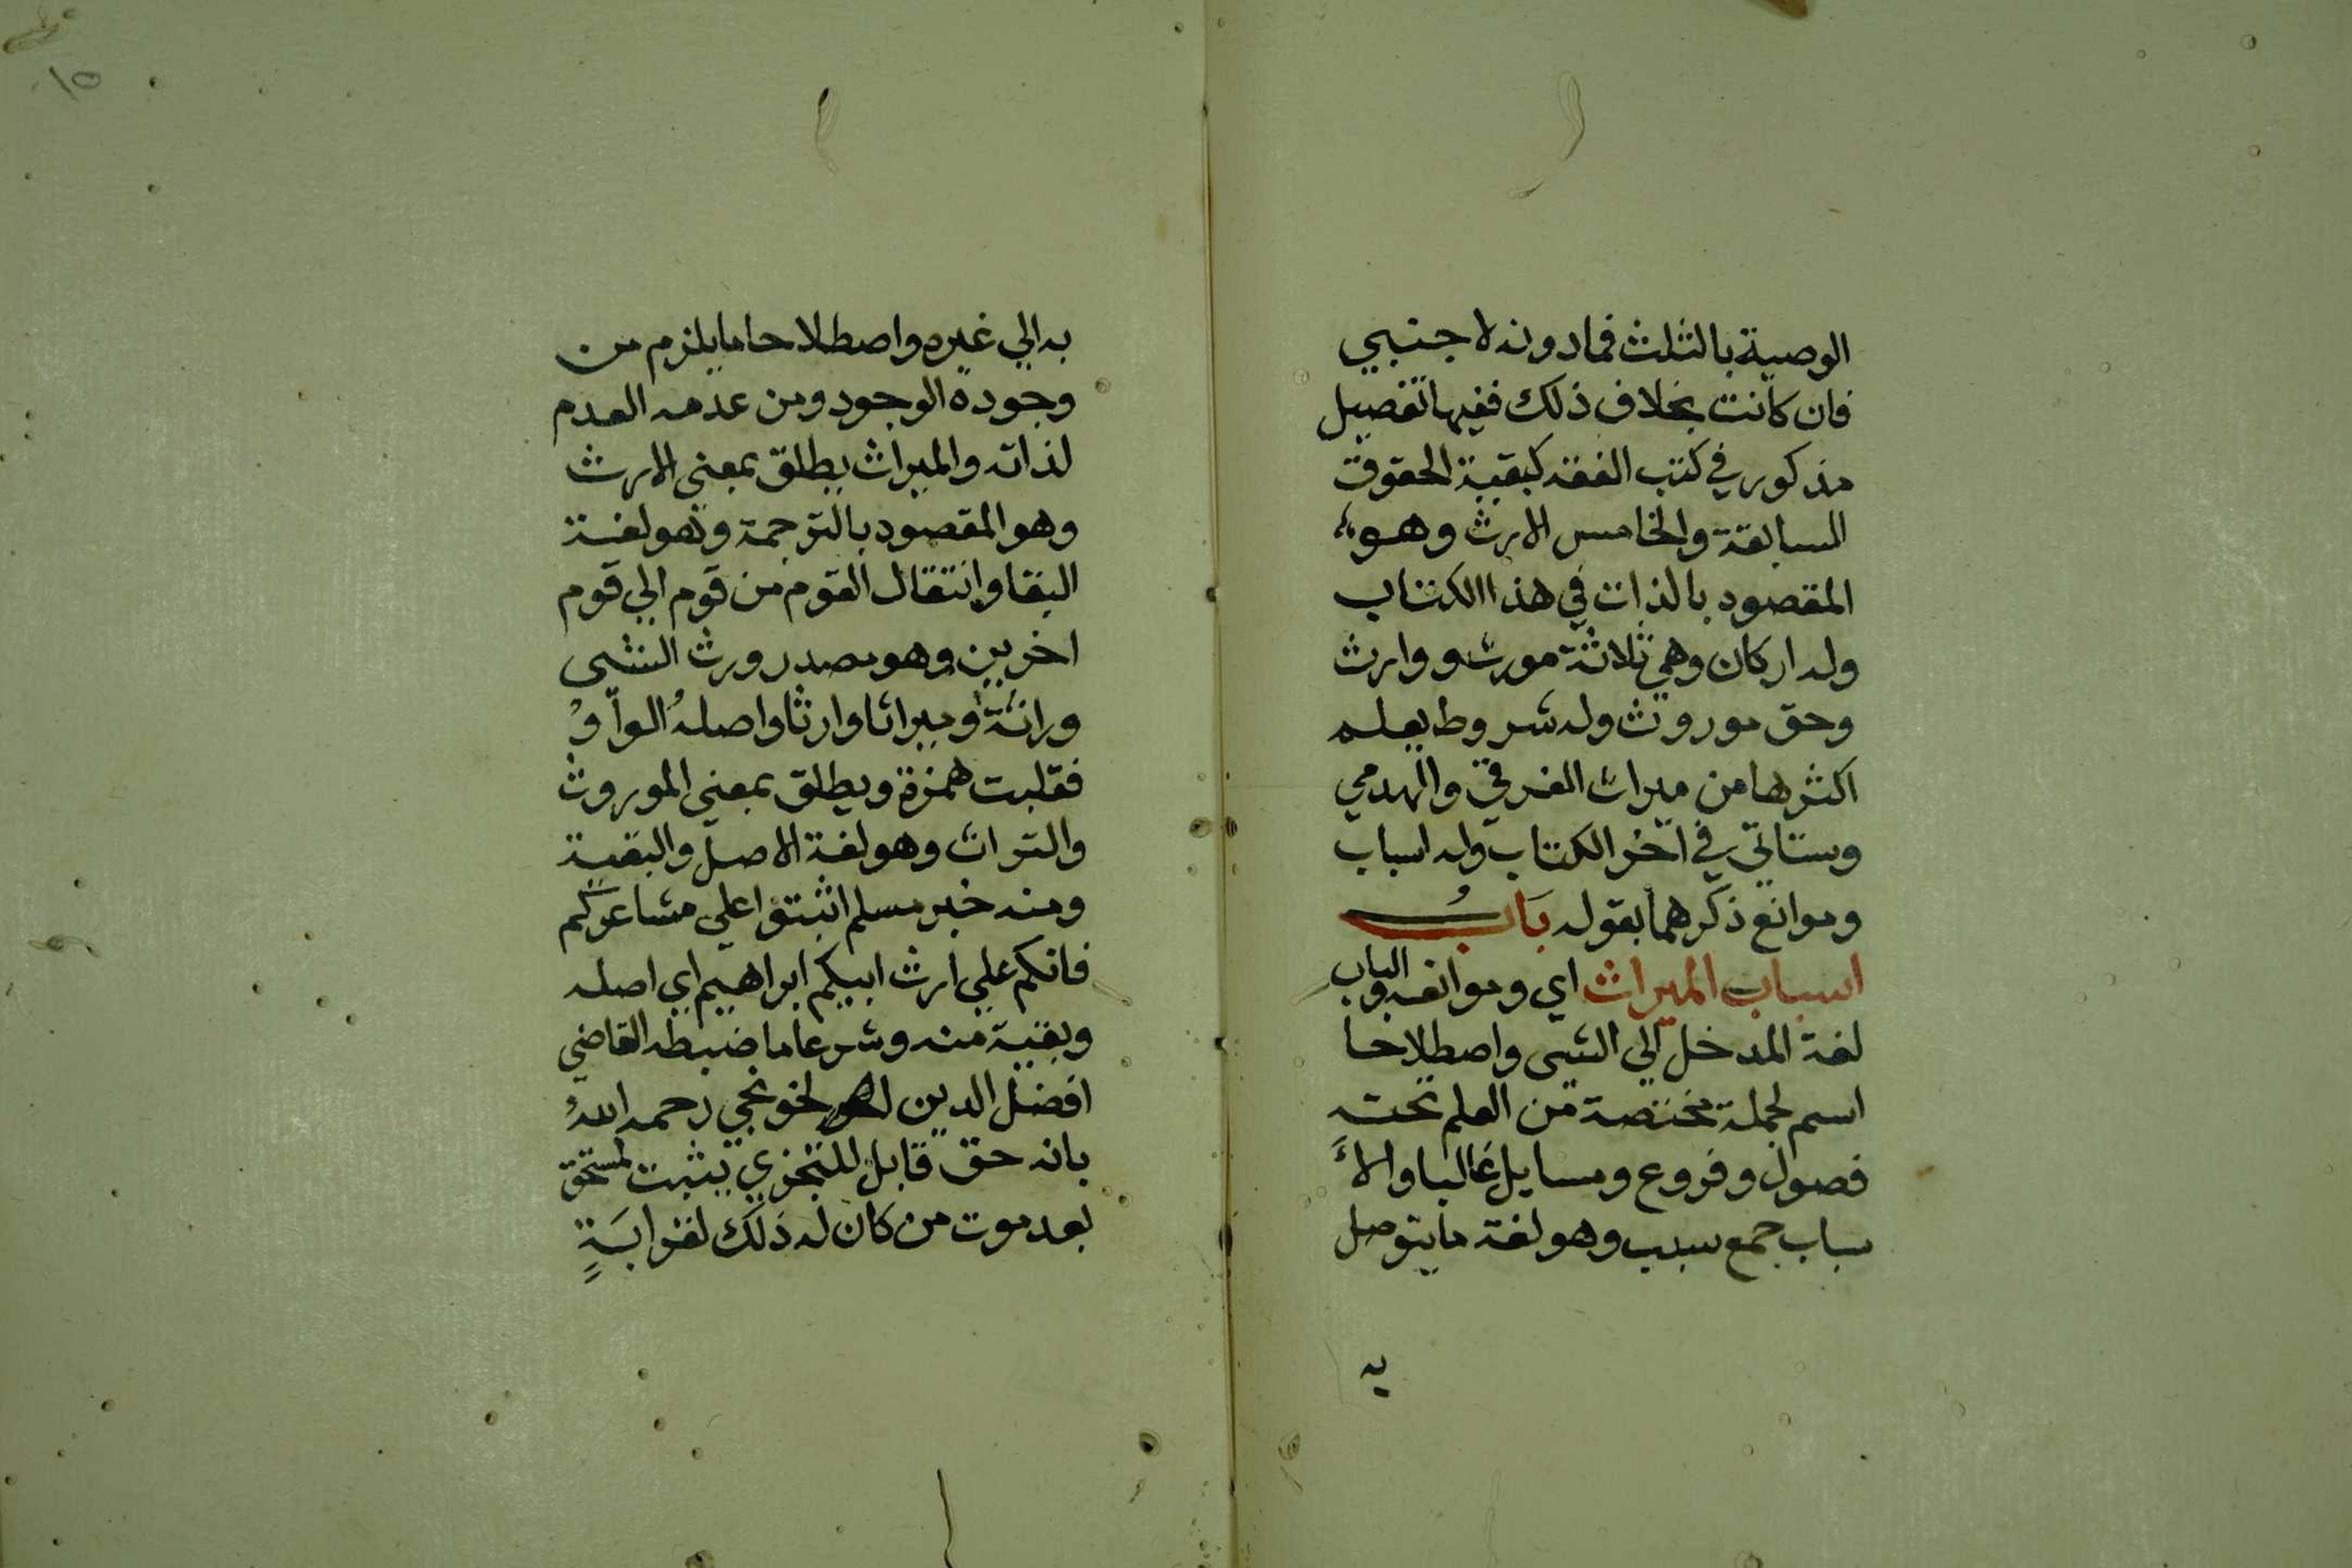 الوصية بالثلث فمادونه لاجنبي
فان كانت بخلاف ذلك ففيها تفصيل
مذكور في كتب الفقه كبقية الحقوق
السابقة والخامس الارث وهو
المقصود بالذات في هذا الكتاب
وله اركان وهي ثلاثة مورث ووارث
وحق موروث وله شروط يعلم
اكثرها من ميراث الغرقي والهدمي
وستاتي في اخر الكتاب وله اسباب
وموانع ذكرهما بقوله بَابُ
اسباب الميراث اي وموانعه والباب
لغة المدخل الي الشي واصطلاحا
اسم لجملة مختصة من العلم تحته
فصول وفروع ومسايل غالبا والا
سباب جمع سبب وهو لغة ما يتوصل
به
١٥
به الي غيره واصطلاحا ما يلزم من
وجوده الوجود ومن عدمه العدم
لذاته والميراث يطلق بمعني الارث
وهو المقصود بالترجمة وهو لغة
البقا وانتقال القوم من قوم الي قوم
اخرين وهو مصدر ورث الشي
وراثة وميراثا وارثا واصله الواو
فقلبت همزة ويطلق بمعني الموروث
والتراث وهو لغة الاصل والبقية
ومنه خبر مسلم اثبتوا علي مشاعركم
فانكم علي ارث ابيكم ابراهيم اي اصله
وبقية منه وشرعا ما ضبطه القاضي
افضل الدين الخونجي رحمه الله
بانه حق قابل للتجزي يثبت لمستحق
بعد موت من كان له ذلك لقرابة